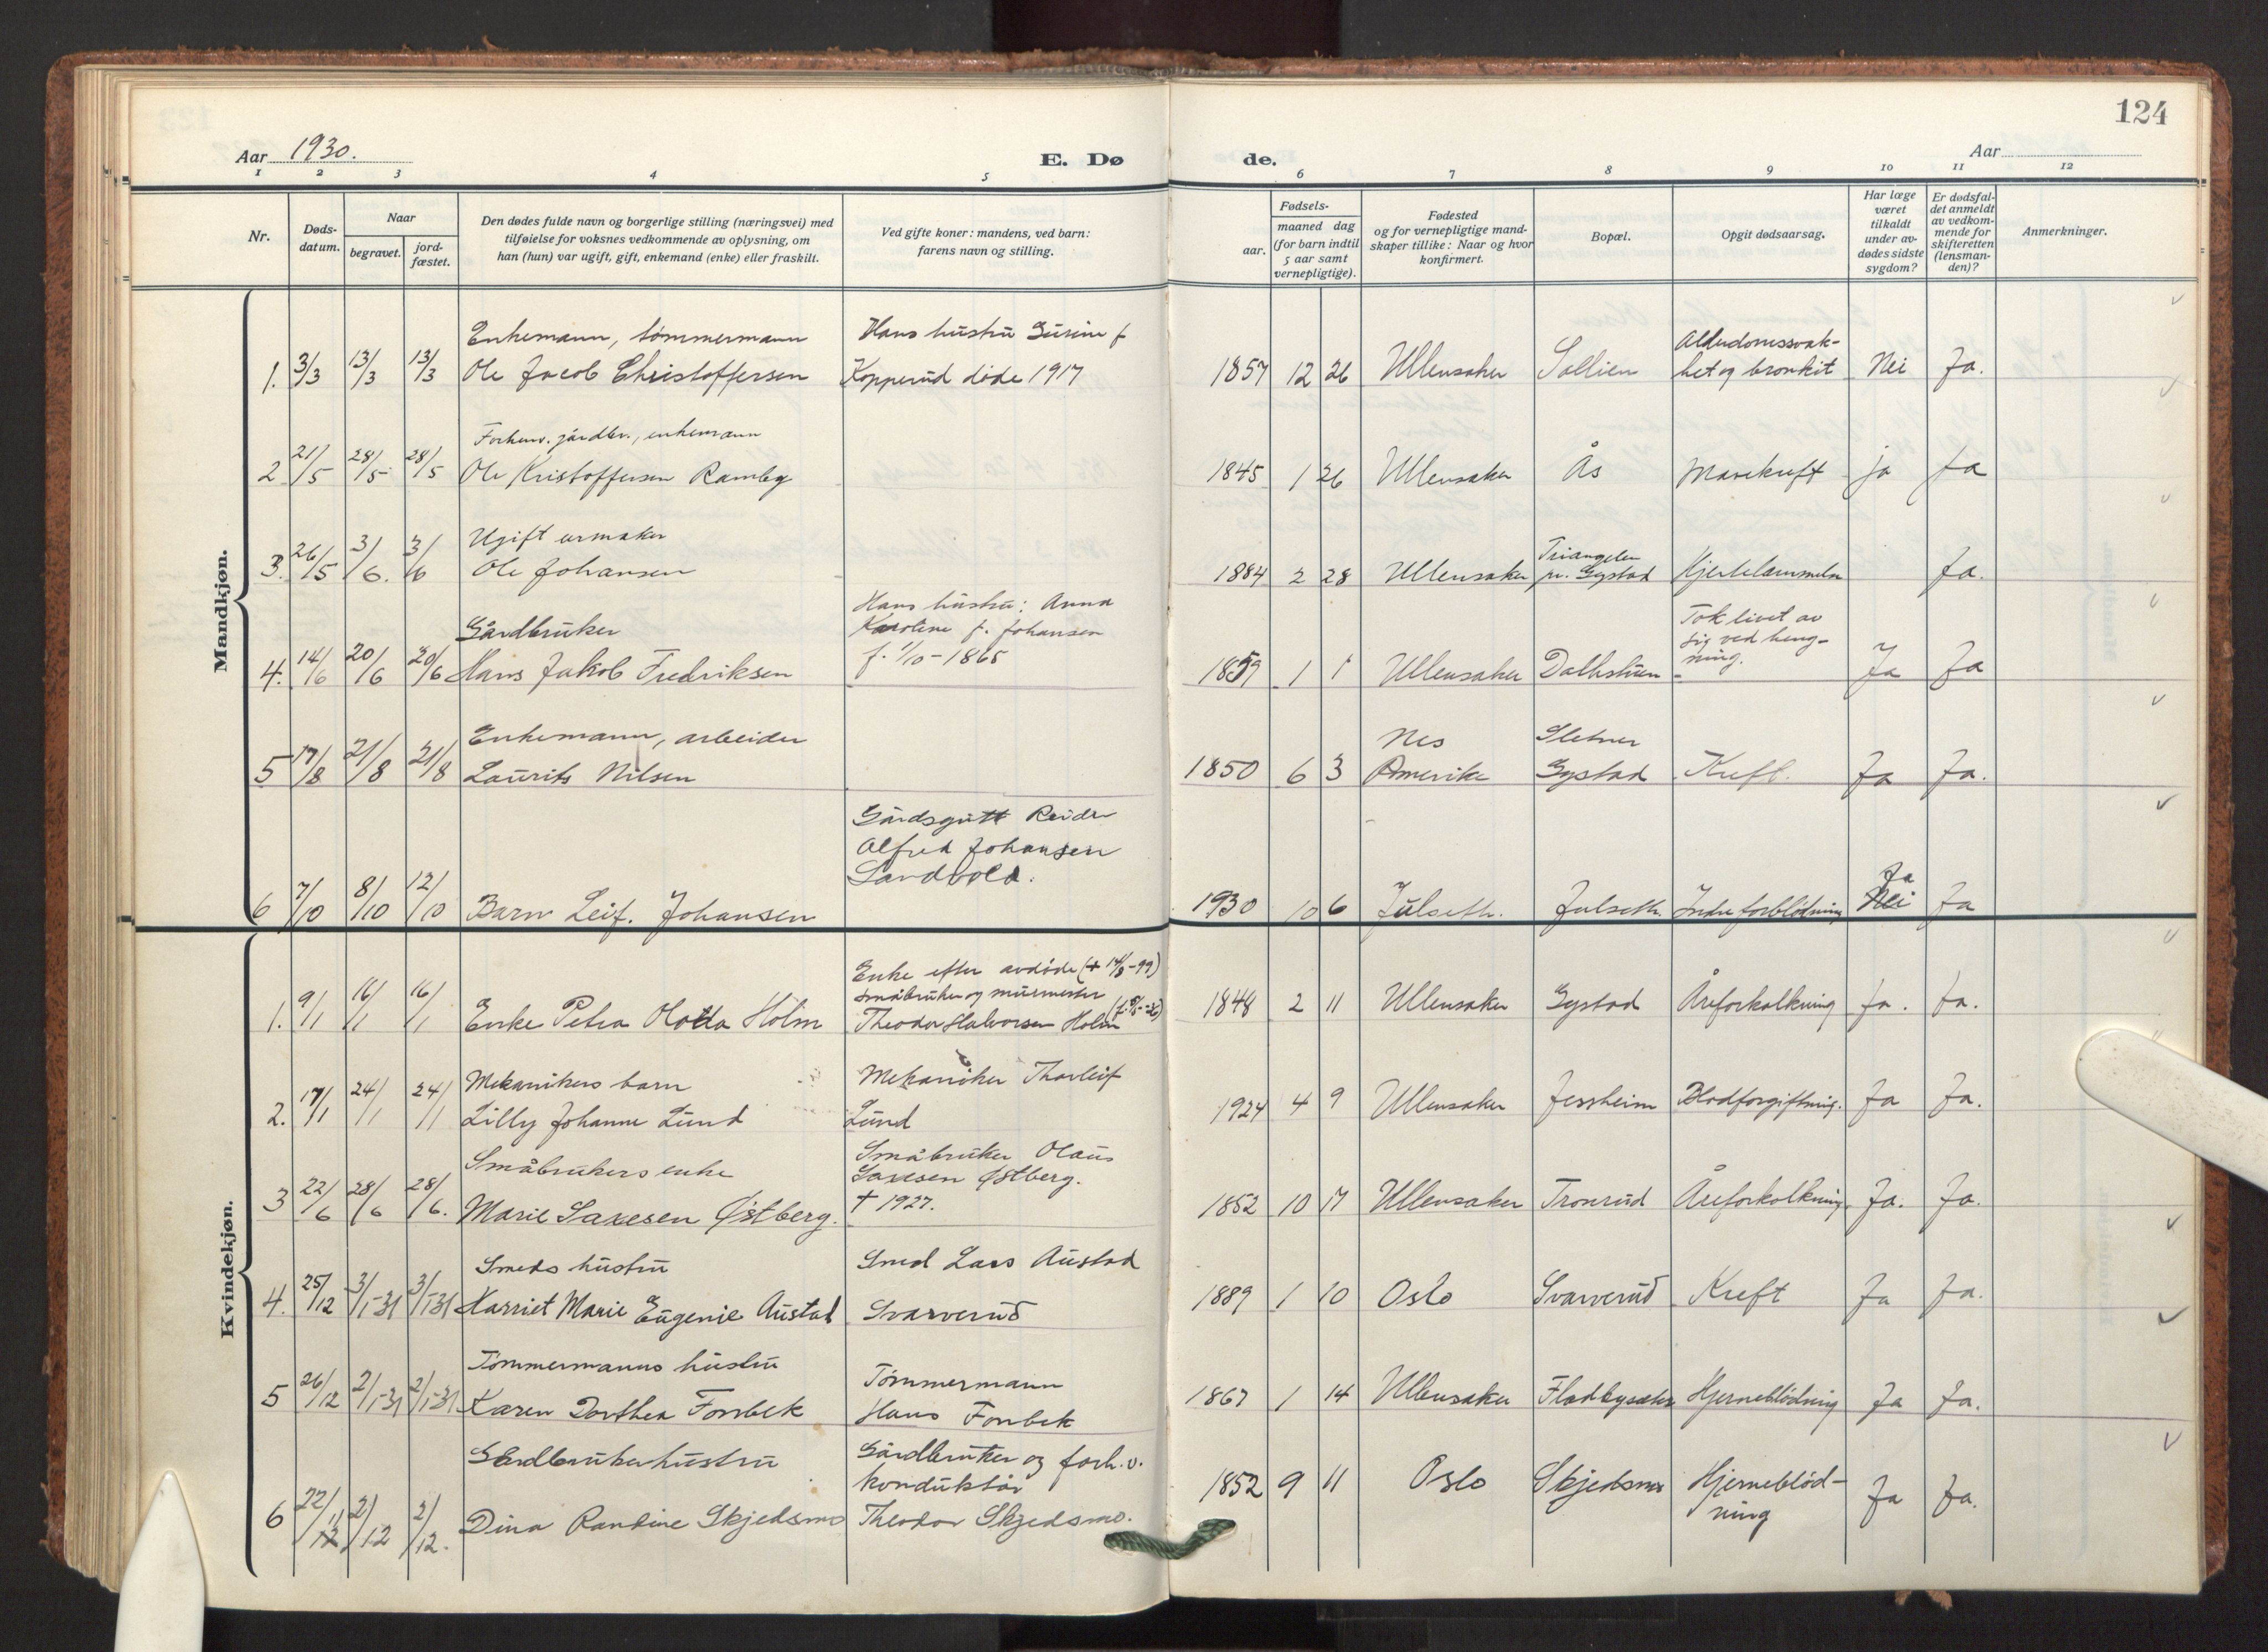 124
Aar 1930.
E. Dø
de.
Aar
1 2 3 4 5 6 7 8 9 10 11 12
Nr.
Døds-
datum.
Naar
begravet.
jord-
fæstet.
Den dødes fulde navn og borgerlige stilling (næringsvei) med
tilføielse for voksnes vedkommende av oplysning, om
han (hun) var ugift, gift, enkemand (enke) eller fraskilt.
Ved gifte koner: mandens, ved barn:
farens navn og stilling.
Fødsels-
aar.
maaned dag
(for barn indtil
5 aar samt
vernepligtige).
Fødested
og for vernepligtige mand-
skaper tillike: Naar og hvor
konfirmert.
Bopæl.
Opgit dødsaarsag.
Har læge
været
tilkaldt
under av-
dødes sidste
sygdom?
Er dødsfal-
det anmeldt
av vedkom-
mende for
skifteretten
(lensman-
den)?
Anmerkninger.
Mandkjøn.
Enkemann, tømmermann Hans hustru Gurine f Alderdomssvak-
1. 3/3 13/3 13/3 Ole Jacob Christoffersen Kopperud døde 1917 1857 12 26 Ullensaker Sollien het og bronkit Nei Ja.
Forhenv. gårdbr., enkemann
2 21/5 28/5 28/5 Ole Kristoffersen Rambg 1845 1 26 Ullensaker Ås Mavekreft ja Ja
Ugift urmaker Triangelen
3. 26/5 3/6. 3/6 Ole Johansen 1884 2 28 Ullensaker pr. Gystad Hjertelammelse Ja.
Hans hustru: Anna Tok livet av
Gårdbruker Karoline f. Johansen sig ved heng-
4. 14/6 20/6 20/6 Hans Jakob Fredriksen f. 1/10-1865 1859 1 1 Ullensaker Dalhstuen ning. Ja Ja
Enkemann, arbeider Nes Sletner
5 17/8 21/8 21/8 Laurits Nilsen 1850 6 3 Amerika Gystad Kreft. Ja Ja.
Gårdsgutt Reidar
Alfred Johansen
Sandvold. Ja
6 7/10 8/10 12/10 Barn Leif. Johansen 1930 10 6 Julseth. Julseth. Indre forblødning Nei Ja
Kvindekjøn.
Enke efter avdøde (+ 14/8-99)
småbruker og murmester
1. 9/1 16/1 16/1 Enke Petra Holm Theodor Halvorsen Holm 1848 2 11 Ullensaker Gystad Åreforkalkning Ja. Ja.
Mekanikers barn Mekaniker Thorleif
2. 17/1 24/1 24/1 Lilly Johanne Lund Lund 1924 4 9 Ullensaker Jessheim Blodforgiftning. Ja Ja.
Småbrukers enke Småbruker Olaus
Saxesen Østberg.
3 22/6 28/6 28/6. Marie Saxesen Østberg. + 1927. 1852 10 17 Ullensaker Tronrud Åreforkalkning. Ja. Ja.
Smeds hustru Smed Lars Austad
4. 25/12 3/1-31 3/1-31 Harriet Marie Eugenie Austad Svarverud 1889 1 10 Oslo Svarverud Kreft Ja Ja.
Tømmermanns hustru Tømmermann
5 26/12 2/1-31 2/1-31 Karen Dorthea Fonbek Hans Fonbek 1867 1 14 Ullensaker Fladbysæter Hjerneblødning Ja Ja.
Gårdbrukerhustru Gårdbruker og forh.v.
konduktør Hjerneblød-
6 22/11 12 2/12 2/12. Dina Randine Skjedsmo Theodor Skjedsmo. 1852 9 11 Oslo Skjedsmo ning Ja Ja.